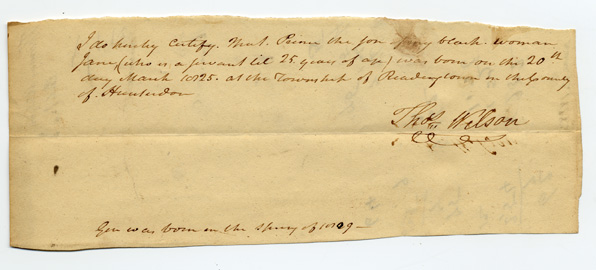 I do hereby certify. That. Prime the son of my black. woman
Jane, (who is a servant til 25 years of age) was born on the 20th
day March 1825. at the Township of Readingtown in the County
of. Hunterdon
Thos. Wilson
was born in the Spring of 1809-